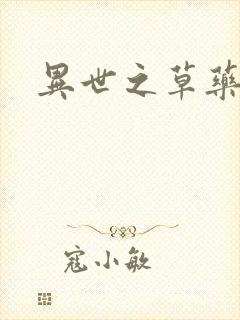 異世之草藥
寇小敏